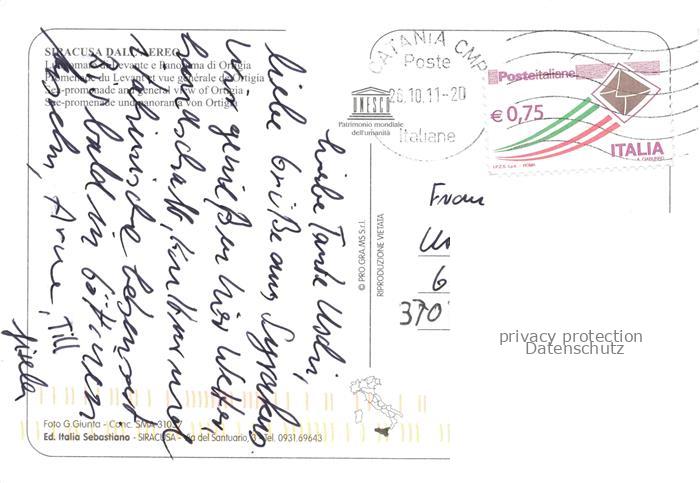 SIRACUSA DALL'AEREO
Lungomare di Levante e Panorama di Ortigia
Promenade du Levant et vue générale de Ortigia
Sea-promenade and general view of Ortigia
See-promenade und panorama von Ortigia
UNESCO
Patrimonio mondiale
dell'umanità
CATANIA CMP
Poste
26.10.11-20
Italiane
Posteitaliane
€ 0,75
ITALIA
I.P.Z.S. S.p.A. - ROMA
Liebe Tante Uschi,
liebe Grüße aus Syrakus.
Wir genießen hier Wetter,
Landschaft, Kultur und
sizilianische Lebensart
Bis bald in Göttingen
Arne, Till
Gisela
© PRO.GRA.MS S.r.l.
RIPRODUZIONE VIETATA
Frau
6
370
privacy protection
Datenschutz
Foto G.Giunta - Conc. SMA
Ed. Italia Sebastiano - SIRACUSA - Via del Santuario, - Tel. 0931.69643